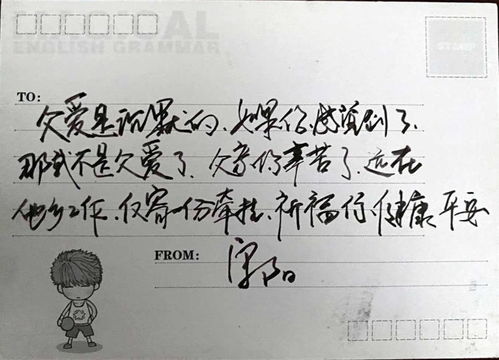 MAGICAL
ENGLISH GRAMMAR
STAMP
TO:
父爱是沉默的,如果你感觉到了,
那就不是父爱了,父亲你辛苦了,远在
他乡工作,仅寄一份牵挂,祈福你,健康平安
FROM: